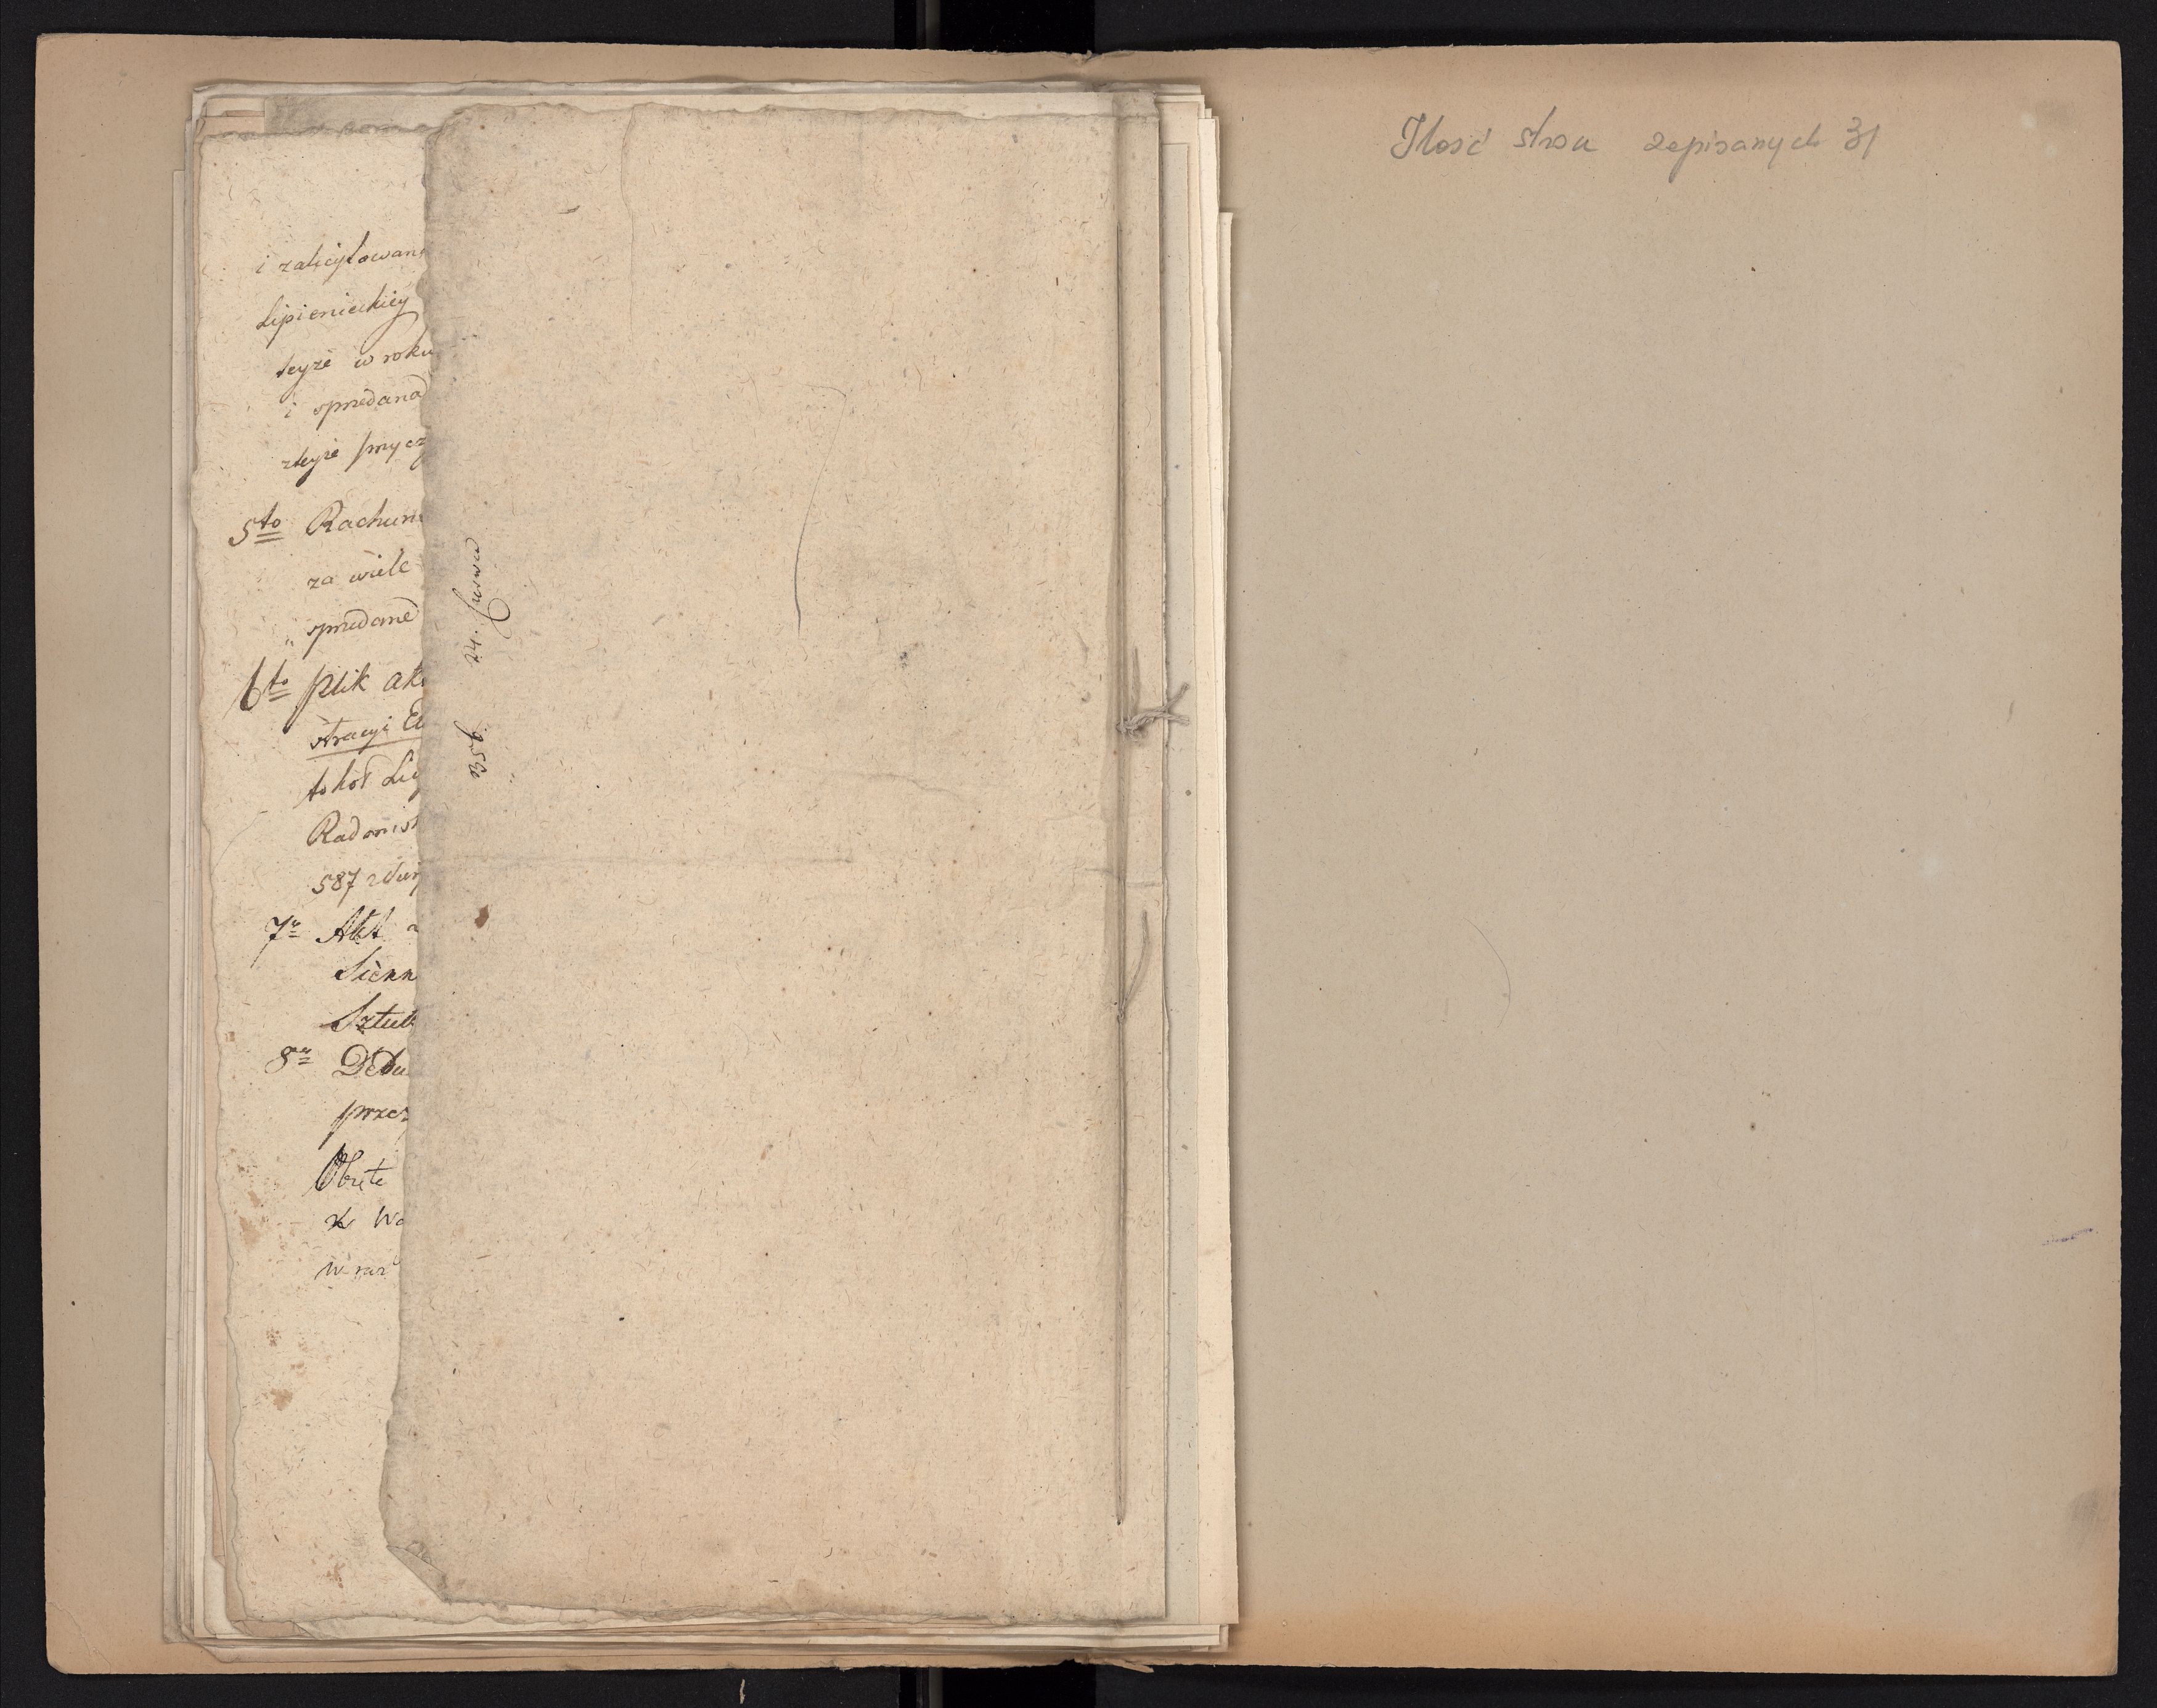 i zalicytowan
Lipienieckiey
teyże w roku
i sprzedana
zteyże przycz
5to Rachun
za wiele
sprzedane
6to plik akt
stracyi
tokoł Licy
Radomis
587
7o Akt
Sienn
Sztuk
8o Dedu
przez
Obięte
z Wo
w raz
356 24. Czerwca
Ilość stron zapisanych 31